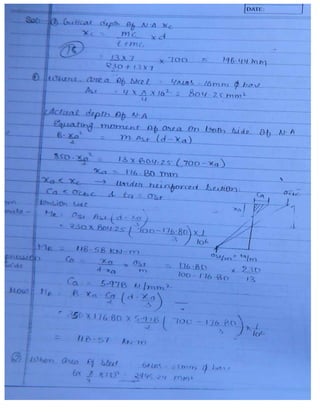 DATE:
Sol:- ① Critical depth of N.A Xc
Xc = mc / t+mc × d
= 13×7 / 230+13×7 × 700 = 196.44 mm
② Where, area of steel = 4 nos 16mm ϕ bar
Ast = 4 × π/4 × 16² = 804.25 mm²
Actual depth of N.A
Equating moment of area on both side of N.A
B·xa²/2 = m Ast (d-xa)
350·xa²/2 = 13×804.25 (700-xa)
xa = 176.80 mm
xa < xc → Under reinforced section
Ca < σcbc & ta = σst
Tension side
MR = σst Ast (d - xa/3)
= 230×804.25 (700-176.80/3) × 1/10⁶
MR = 118.58 kN-m
Ca = xa/d-xa × σst/m = 176.80/700-176.80 × 230/13
Ca = 5.978 N/mm²
Now MR = B xa Ca/2 (d - xa/3)
= 350×176.80×5.978/2 (700 - 176.80/3) × 1/10⁶
= 118.57 kN-m
② When area of steel 6 nos 25mm ϕ bar
6× π/4 ×25² = 2945.24 mm²